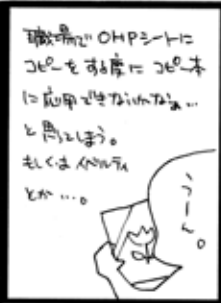 職場でOHPシートに
コピーをする度にコピー本
に応用できないかなぁ…
と思ってしまう。
もしくはノベルティ
とか…。
うーん。